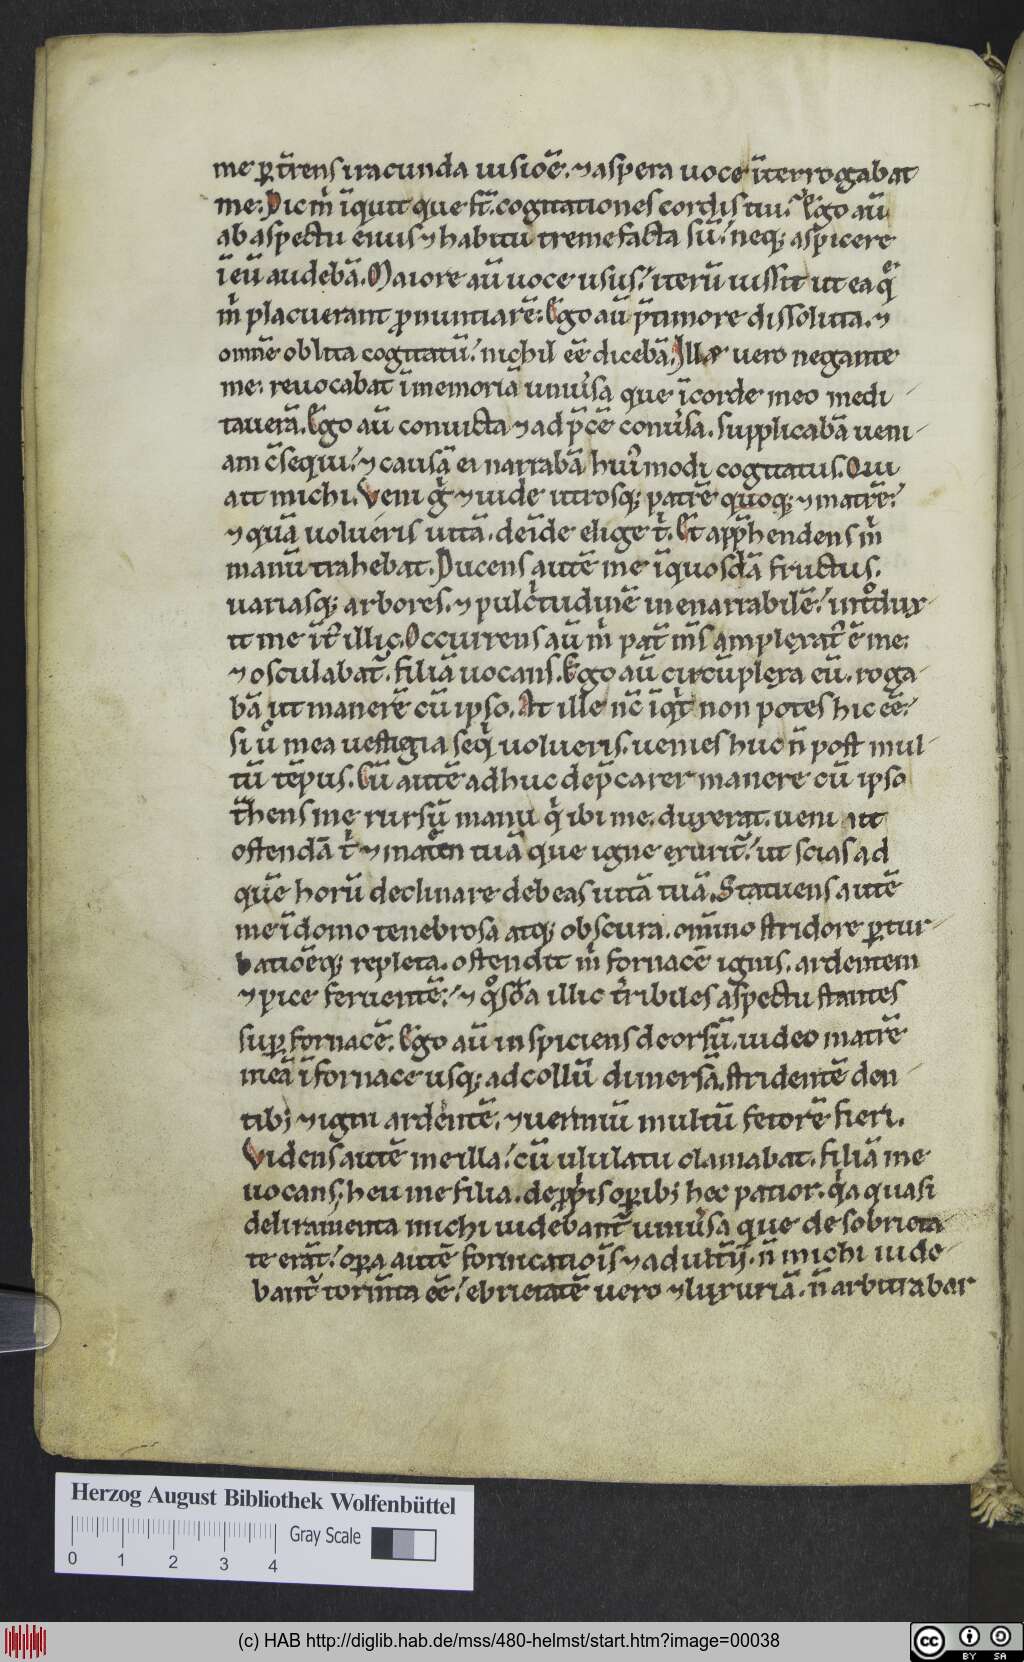 me ꝑt̄rens iracunda uisiōe. ⁊ aspera uoce īterrogabat
me. Dic m̊ īquit que st̄ cogitationes cordis tui. Ego aū
ab aspectu eius ⁊ habitu tremefacta sū. neq; aspicere
ī eū audebā. Maiore aū uoce usus. iterū iussit ut ea q̄
m̊ placuerant ꝓnuntiarē. Ego aū p̄ timore dissoluta. ⁊
omnē oblita cogitatū. nichil eē dicebā. Illa uero negante
me. reuocabat ī memoriā uniūsa que ī corde meo medi
tauerā. Ego aū conuicta ⁊ ad p̄cē conūsa. supplicabā ueni
am c̄sequi. ⁊ causā ei narrabā hui modi cogitatus. Qui
ait michi. Veni g̊ ⁊ uide utrosq; patrē quoq; ⁊ matrē.
⁊ quā uolueris uitā. deīde elige t̊. Et app̄hendens m̊
manū trahebat. Ducens autē me ī quosdā fructus.
uariasq; arbores. ⁊ pulc̊tudinē inenarrabilē. introdux
it me īt̄ illic. Occurrens aū m̊ pat̄ m̄s amplexat̄ ē me.
⁊ osculabat̄. filiā uocans. Ego aū circūplexa eū. roga
bā ut manerē cū ipso. At ille n̄c īq̊t non potes hic eē.
si ů mea uestigia seq̊ uolueris. uenies huc n̄ post mul
tū tēpus. Cū autē adhuc dep̄carer manere cū ipso
t̄hens me rursū manu q̊ ibi me duxerat. ueni ait
ostendā t̊ ⁊ mat̄en tuā que igne exurit̄. ut scias ad
quē horū declinare debeas uitā tuā. Statuens autē
me ī domo tenebrosa atq; obscura. omīno stridore ꝑtur
batiōeq; repleta. ostendit m̊ fornacē ignis. ardentem
⁊ pice feruentē. ⁊ q̊sdā illic t̄ribiles aspectu stantes
suꝑ fornacē. Ego aū inspiciens deorsū. uideo matrē
meā ī fornace usq; ad collū dimersā. stridentē den
tib; ⁊ igni ardentē. ⁊ uermiū multū fetorē fieri.
Videns autē me illa. cū ululatu clamabat. filiā me
uocans. heu me filia. de ꝓp̊is oꝑib; hec patior. q̊a quasi
deliramenta michi uidebant̄ uniūsa que de sobrieta
te erāt. oꝑa autē fornicatiōis ⁊ adult̄ij. n̄ michi uide
bant̄ torm̄ta eē. ebrietatē uero ⁊ luxuriā. n̄ arbitrabar
Herzog August Bibliothek Wolfenbüttel
Gray Scale
0 1 2 3 4
(c) HAB http://diglib.hab.de/mss/480-helmst/start.htm?image=00038
cc BY SA